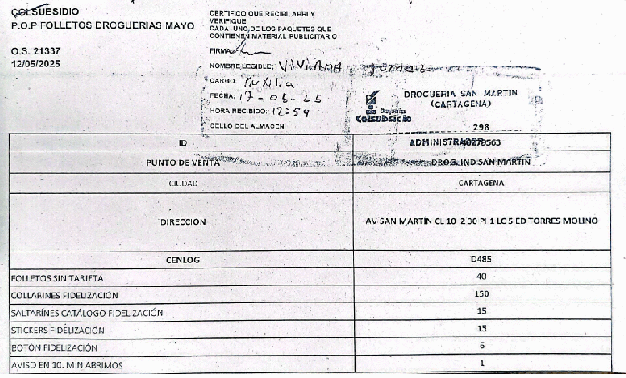 COLSUBSIDIO
P.O.P FOLLETOS DROGUERIAS MAYO
O.S. 21337
12/05/2025
CERTIFICO QUE RECIBI, ABRI Y
VERIFIQUE
CADA UNO DE LOS PAQUETES QUE
CONTIENEN MATERIAL PUBLICITARIO
FIRMA
NOMBRE LEGIBLE: VIVIANA
CARGO:
FECHA: 17-05-25
HORA RECIBIDO: 12:54
SELLO DEL ALMACEN
DROGUERIA SAN MARTIN
(CARTAGENA)
Droguería
COLSUBSIDIO
298
ADMINISTRADOR
ID
PUNTO DE VENTA DROG IND SAN MARTIN
CIUDAD CARTAGENA
DIRECCION AV SAN MARTIN CL 10 2 00 PI 1 LO 5 ED TORRES MOLINO
CENLOG D485
FOLLETOS SIN TARJETA 40
COLLARINES FIDELIZACIÓN 150
SALTARÍNES CATÁLOGO FIDELIZACIÓN 15
STICKERS FIDELIZACIÓN 15
BOTÓN FIDELIZACIÓN 6
AVISO EN 30. MIN ABRIMOS 1